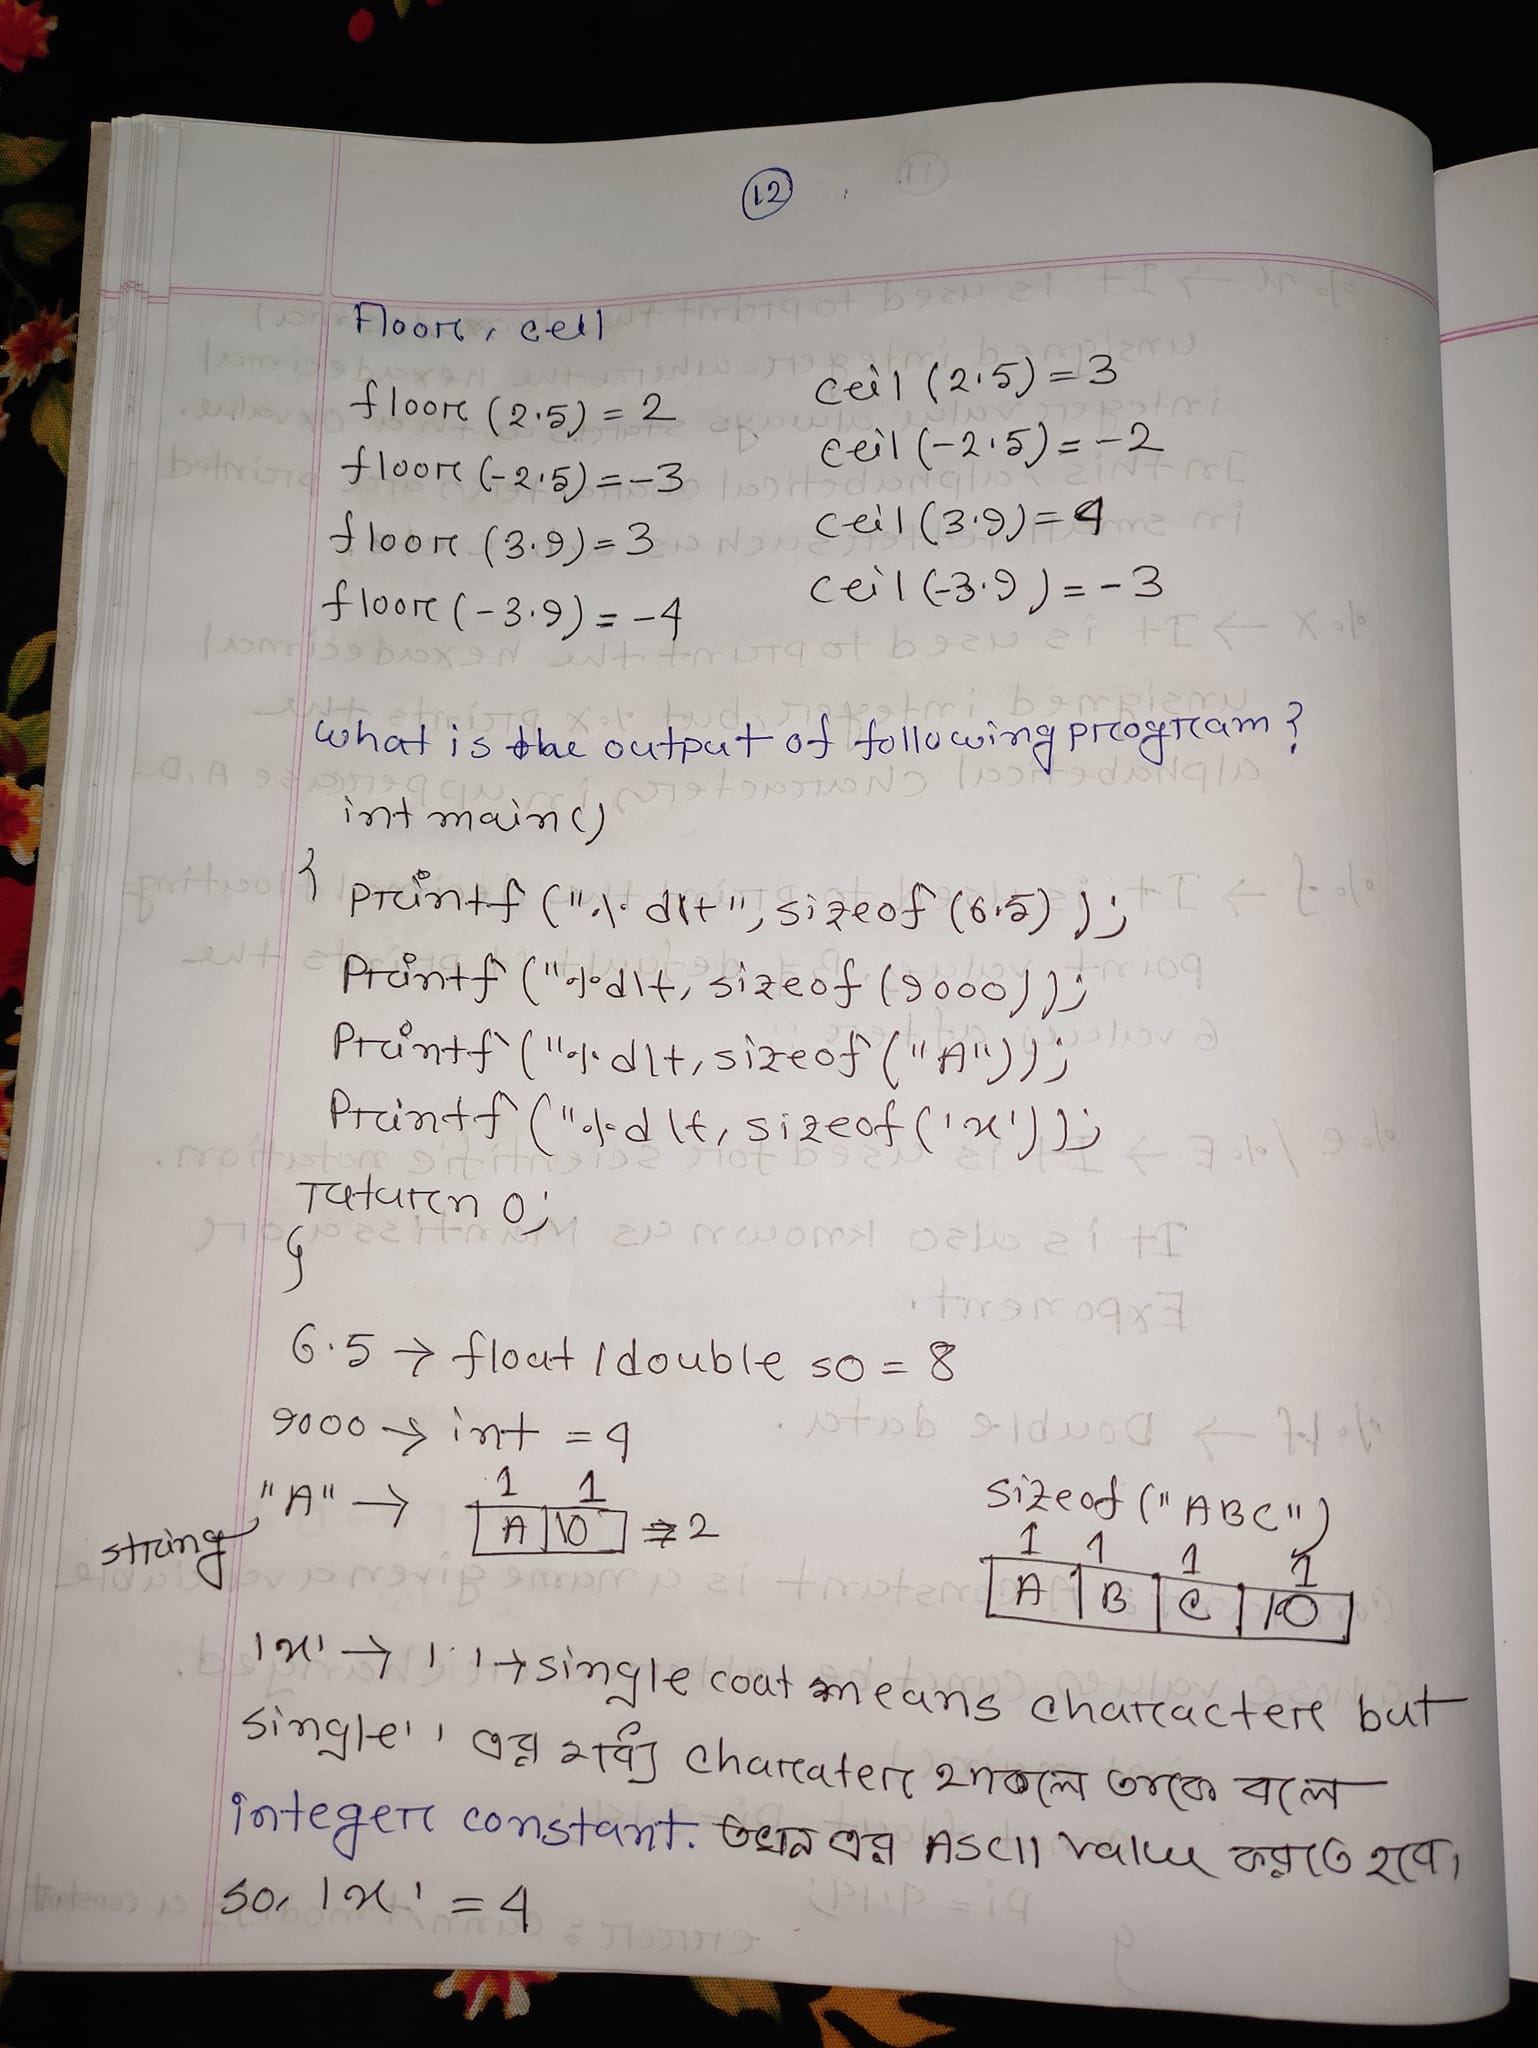 12
Floor, ceil
floor (2.5) = 2
ceil (2.5) = 3
floor (-2.5) = -3
ceil (-2.5) = -2
floor (3.9) = 3
ceil (3.9) = 4
floor (-3.9) = -4
ceil (-3.9) = -3
what is the output of following program?
int main()
{ printf ("%d\t", sizeof (6.5) );
Printf ("%d\t, sizeof (9000));
Printf ("%d\t, sizeof ("A"));
Printf ("%d\t, sizeof ('x'));
return 0;
}
6.5 → float / double so = 8
9000 → int = 4
"A" → 1 1
string A \0 ⇒ 2
sizeof ("ABC")
1 1 1 1
A B C \0
'x' → ' ' → single coat means character but
single ' ' এর মধ্যে charcater থাকলে তাকে বলে
integer constant. তখন এর ASCII value করতে হবে।
so, 'x' = 4